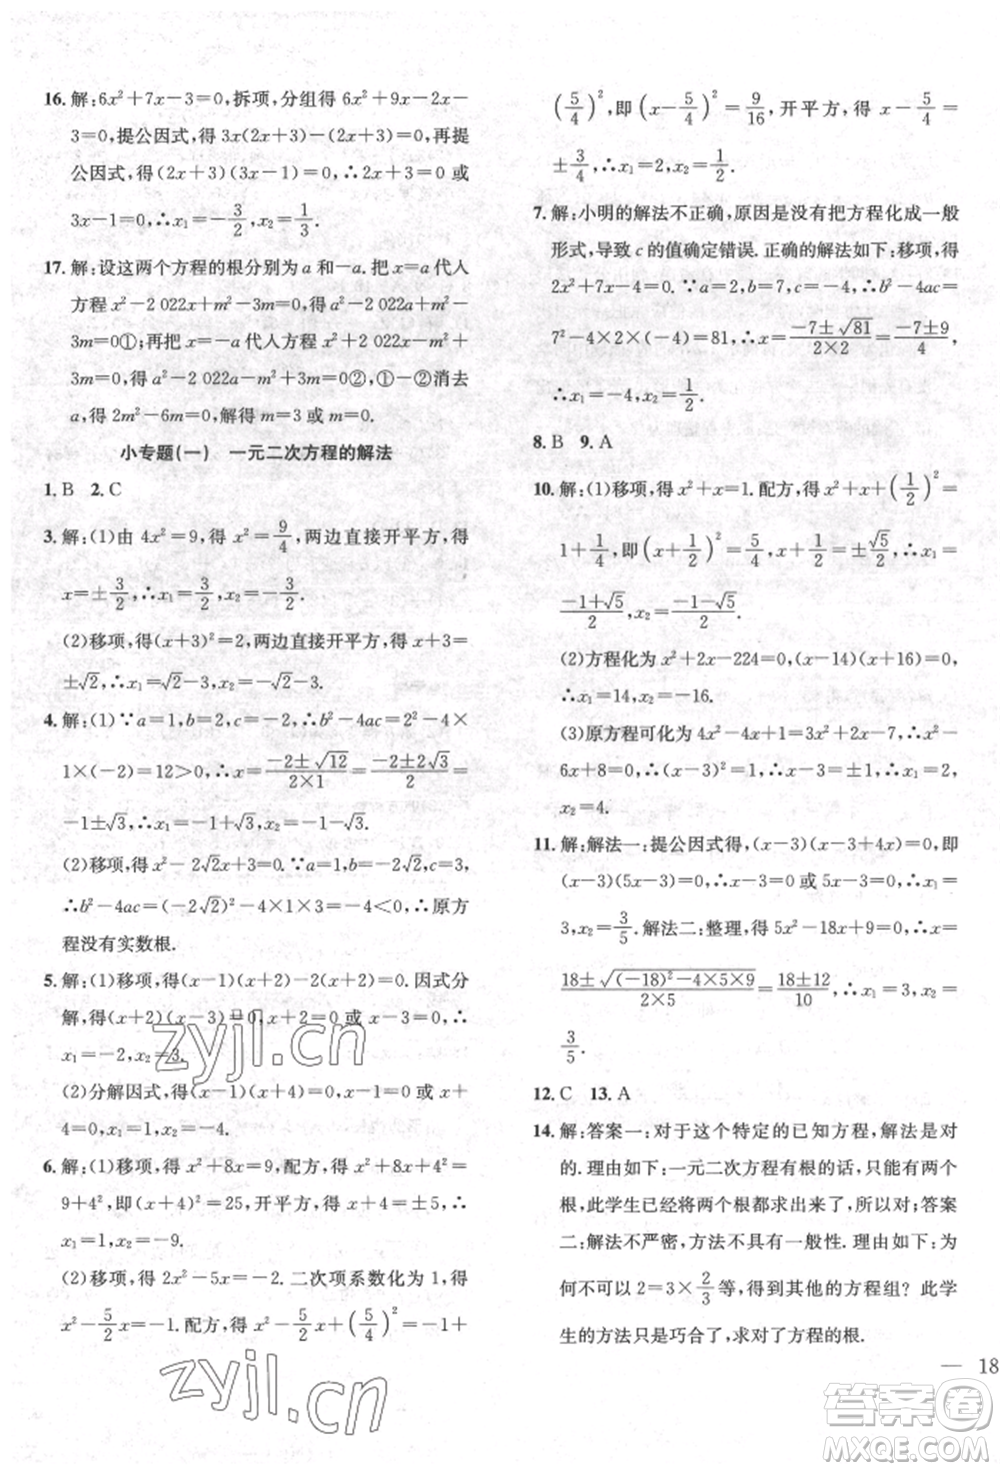 16. 解:6x²+7x-3=0,拆项,分组得 6x²+9x-2x-
3=0,提公因式,得 3x(2x+3)-(2x+3)=0,再提
公因式,得(2x+3)(3x-1)=0,∴2x+3=0 或
3x-1=0,∴x₁=-3/2,x₂=1/3.
17. 解:设这两个方程的根分别为 a 和-a.把 x=a 代人
方程 x²-2 022x+m²-3m=0,得 a²-2 022a+m²-
3m=0①;再把 x=-a 代人方程 x²+2 022x-m²+
3m=0,得 a²-2 022a-m²+3m=0②,①-②消去
a,得 2m²-6m=0,解得 m=3 或 m=0.
小专题(一) 一元二次方程的解法
1. B 2. C
3. 解:(1)由 4x²=9,得 x²=9/4,两边直接开平方,得
x=±3/2,∴x₁=3/2,x₂=-3/2.
(2)移项,得(x+3)²=2,两边直接开平方,得 x+3=
±√2,∴x₁=√2-3,x₂=-√2-3.
4. 解:(1)∵a=1,b=2,c=-2,∴b²-4ac=2²-4×
1×(-2)=12>0,∴x=(-2±√12)/(2×1)=(-2±2√3)/2=
-1±√3,∴x₁=-1+√3,x₂=-1-√3.
(2)移项,得 x²-2√2x+3=0.∵a=1,b=-2√2,c=3,
∴b²-4ac=(-2√2)²-4×1×3=-4<0,∴原方
程没有实数根.
5. 解:(1)移项,得(x-1)(x+2)-2(x+2)=0.因式分
解,得(x+2)(x-3)=0,∴x+2=0 或 x-3=0,∴
x₁=-2,x₂=3.
(2)分解因式,得(x-1)(x+4)=0,∴x-1=0 或 x+
4=0,∴x₁=1,x₂=-4.
6. 解:(1)移项,得 x²+8x=9,配方,得 x²+8x+4²=
9+4²,即(x+4)²=25,开平方,得 x+4=±5,∴
x₁=1,x₂=-9.
(2)移项,得 2x²-5x=-2.二次项系数化为 1,得
x²-5/2x=-1.配方,得 x²-5/2x+(5/4)²=-1+
(5/4)²,即(x-5/4)²=9/16,开平方,得 x-5/4=
±3/4,∴x₁=2,x₂=1/2.
7. 解:小明的解法不正确,原因是没有把方程化成一般
形式,导致 c 的值确定错误.正确的解法如下:移项,得
2x²+7x-4=0.∵a=2,b=7,c=-4,∴b²-4ac=
7²-4×2×(-4)=81,∴x=(-7±√81)/(2×2)=(-7±9)/4,
∴x₁=-4,x₂=1/2.
8. B 9. A
10. 解:(1)移项,得 x²+x=1.配方,得 x²+x+(1/2)²=
1+1/4,即(x+1/2)²=5/4,∴x+1/2=±√5/2,∴x₁=
(-1+√5)/2,x₂=(-1-√5)/2.
(2)方程化为 x²+2x-224=0,(x-14)(x+16)=0,
∴x₁=14,x₂=-16.
(3)原方程可化为 4x²-4x+1=x²+6x+9-2,∴x²-
6x+8=0,∴(x-3)²=1,∴x-3=±1,∴x₁=2,
x₂=4.
11. 解:解法一:提公因式得,(x-3)(x-3+4x)=0,即
(x-3)(5x-3)=0,∴x-3=0 或 5x-3=0,∴x₁
=3,x₂=3/5.解法二:整理,得 5x²-18x+9=0,∴x=
(18±√((-18)²-4×5×9))/(2×5)=(18±12)/10,∴x₁=3,x₂=
3/5.
12. C 13. A
14. 解:答案一:对于这个特定的已知方程,解法是对
的.理由如下:一元二次方程有根的话,只能有两个
根,此学生已经将两个根都求出来了,所以对;答案
二:解法不严密,方法不具有一般性.理由如下:为
何不可以 2=3×2/3等,得到其他的方程组?此学
生的方法只是巧合了,求对了方程的根.
— 18
zyjl.cn
zyjl.cn
答案圈
MXQE.COM